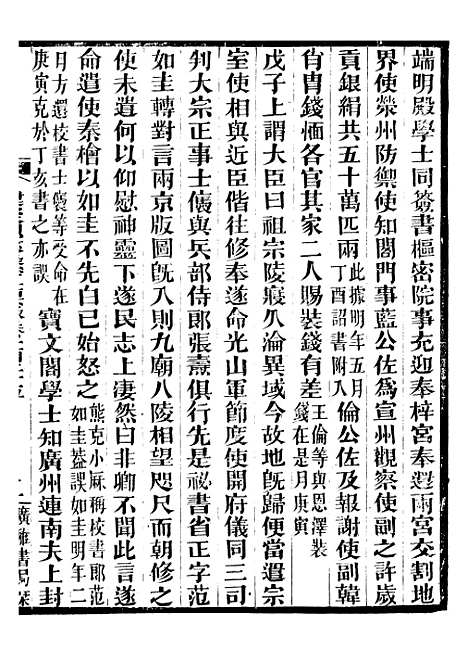 端明殿學士同簽書樞密院事充迎奉梓宮奉還兩宮交割地
界使榮州防禦使知閤門事藍公佐爲宣州觀察使副之許歲
貢銀絹共五十萬匹兩此據明年五月丁酉詔書附入倫公佐及報謝使副韓
肖胄錢愐各官其家二人賜裝錢有差王倫等與恩澤裝錢在是月庚寅
戊子上謂大臣曰祖宗陵寢久淪異域今故地旣歸便當遣宗
室使相與近臣偕往修奉遂命光山軍節度使開府儀同三司
判大宗正事士㒟與兵部侍郎張燾俱行先是祕書省正字范
如圭轉對言兩京版圖旣入則九廟八陵相望咫尺而朝修之
使未遣何以仰慰神靈下遂民志上淒然曰非卿不聞此言遂
命遣使秦檜以如圭不先白已始怒之熊克小厤稱校書郎范如圭葢誤如圭明年二
月方還校書士㒟等受命在庚寅克於丁亥書之亦誤寶文閣學士知廣州連南夫上封
廣雅書局栞